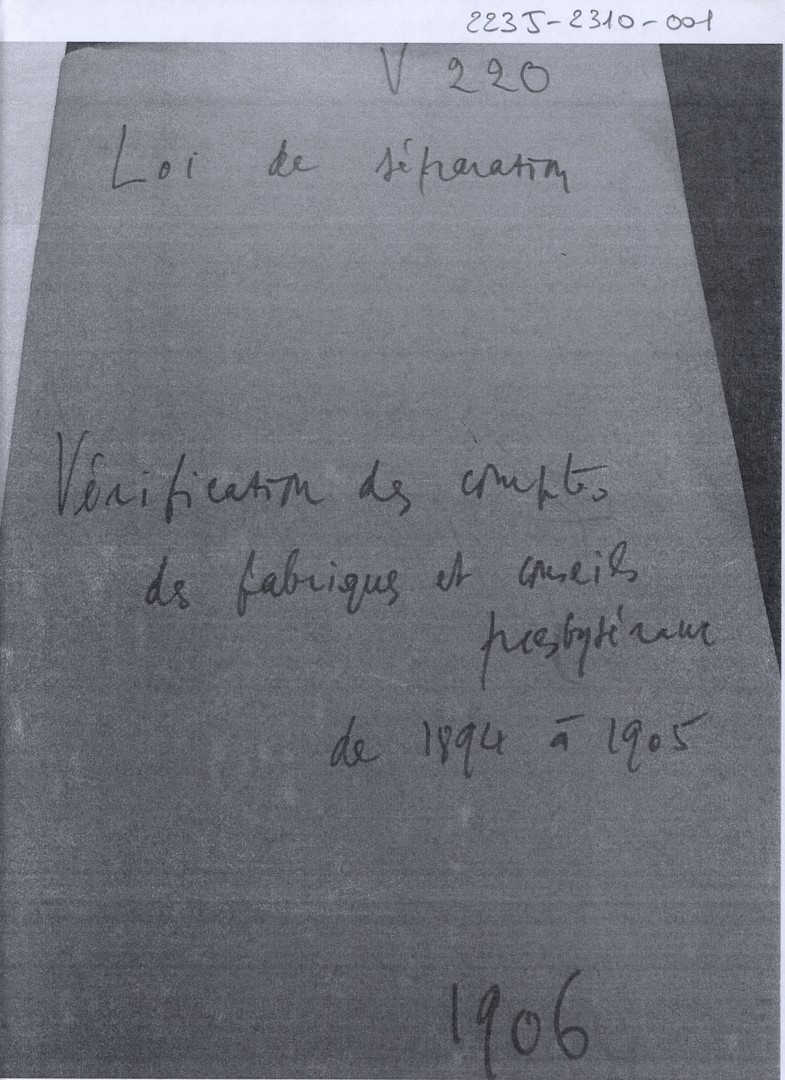 223J-2310-001
V 220
Loi de séparation
Vérification des comptes
des fabriques et conseils
presbytéraux
de 1894 à 1905
1906